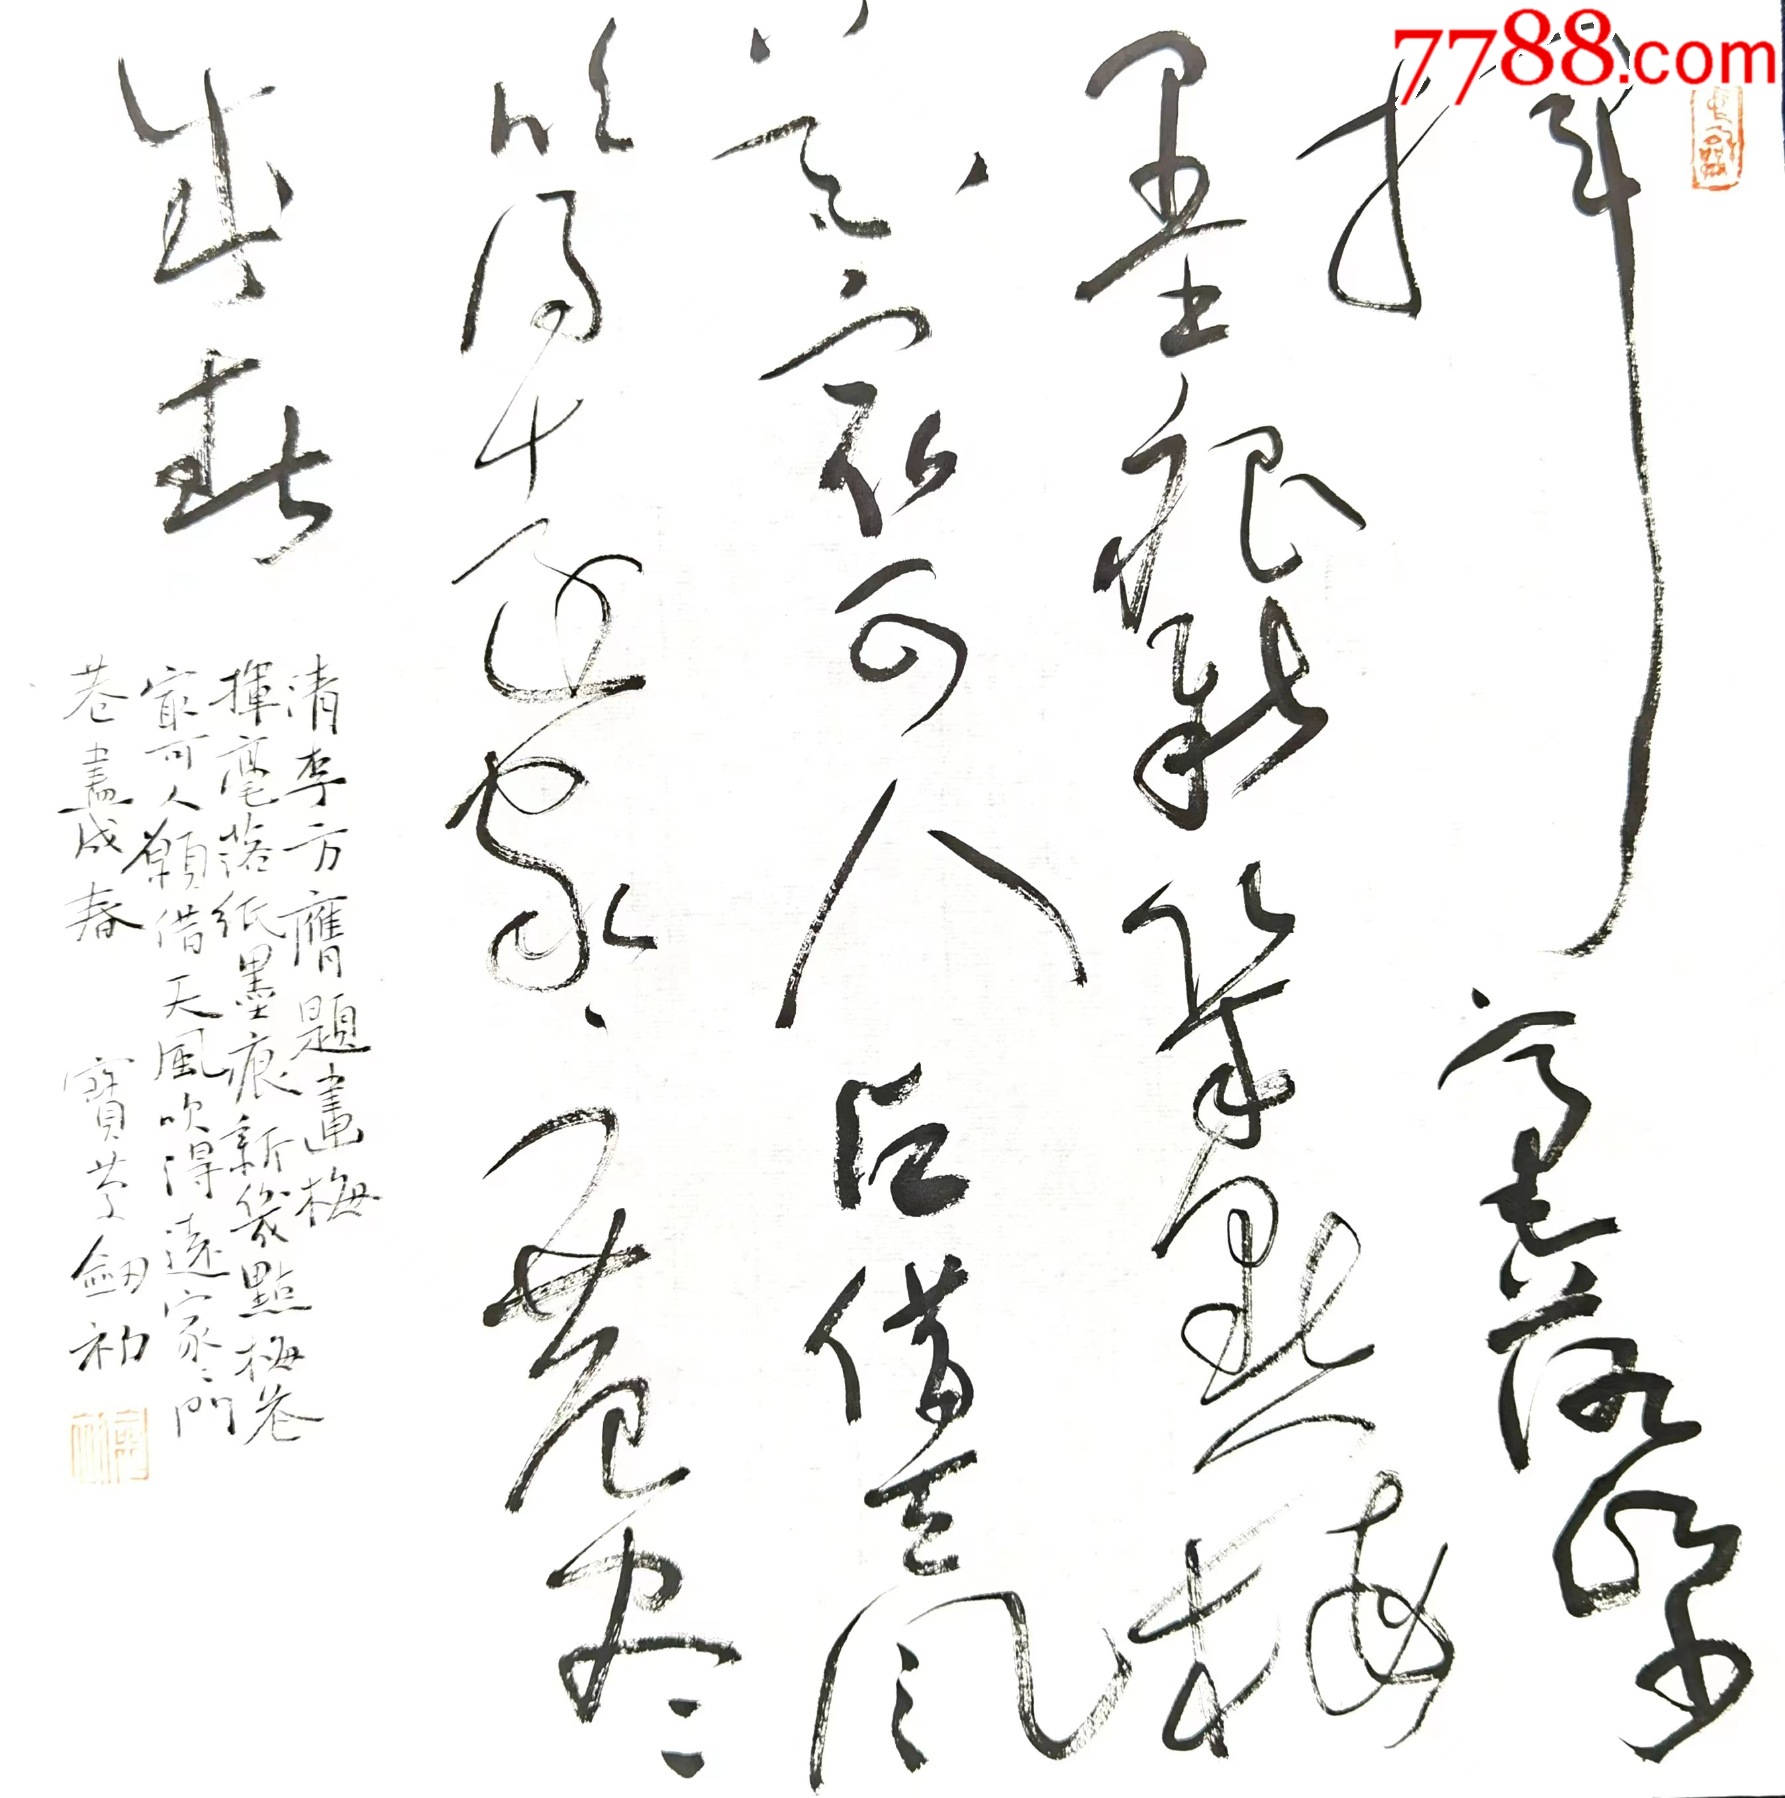 7788.com
揮毫落紙
墨痕新幾點梅
花最可人願借天風
吹得遠家〻門巷盡
成春
清李方膺題畫梅
揮毫落紙墨痕新幾點梅花
最可人願借天風吹得遠家〻門
巷盡成春 寶 劍初